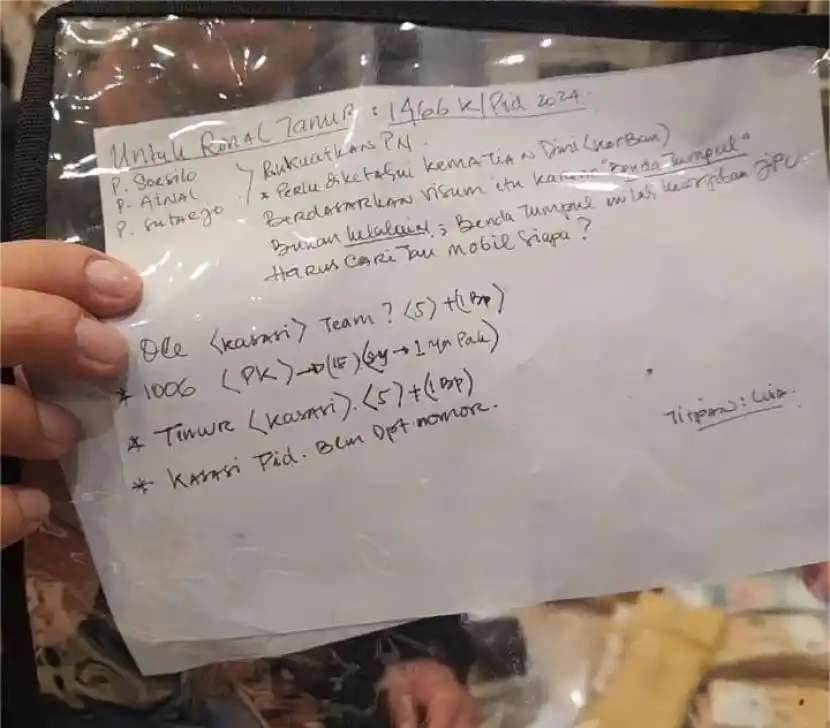 Untuk Ronal Tanur : 1466 K/Pid 2024.
P. Soesilo
P. Ainal
P. Sutarjo
Kuatkan PN.
* Perlu diketahui kematian Dini (korban)
Berdasarkan visum itu "Benda Tumpul"
Bukan ; Benda Tumpul JPU
Harus cari tau mobil siapa?
(kasasi) Team? (5) + (1 BP)
* 1006 (PK) → (15) → 1 Pak)
* Timur (kasasi). (5) + (1 BP)
* Kasasi Pid. Blm Dpt nomor.
Titipan : Lisa.